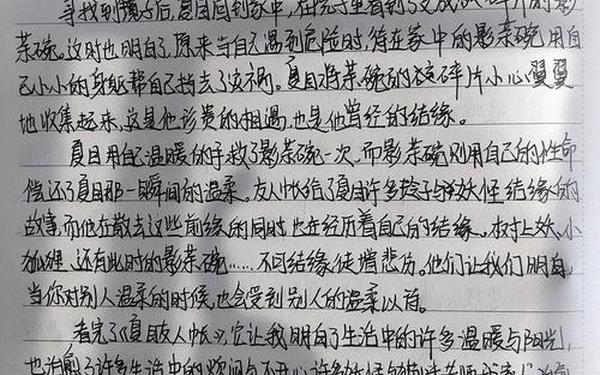 寻找到镜子后,夏目回到家中,在院子里看到了变成碎片的影
茶碗。这时他明白了,原来当自己遇到危险时,待在家中的影茶碗用自
己小小的身躯帮自己挡去了灾祸。夏目将茶碗的碎片小心翼翼
地收集起来,这是他珍贵的相遇,也是他曾经的结缘。
夏目用自己温暖的手救了影茶碗一次,而影茶碗则用自己的性命
偿还了夏目那一瞬间的温柔。友人帐给了夏目许多于妖怪结缘的
故事,而他在散去这些前缘的同时也在经历着自己的结缘。树上妖、小
狐狸、还有此时的影茶碗……不同结缘徒增悲伤。他们让我们明白,
当你对别人温柔的时候,也会受到别人的温柔以待。
看完了《夏目友人帐》,它让我明白了生活中的许多温暖与阳光,
也治愈了许多生活中的烦闷与不开心